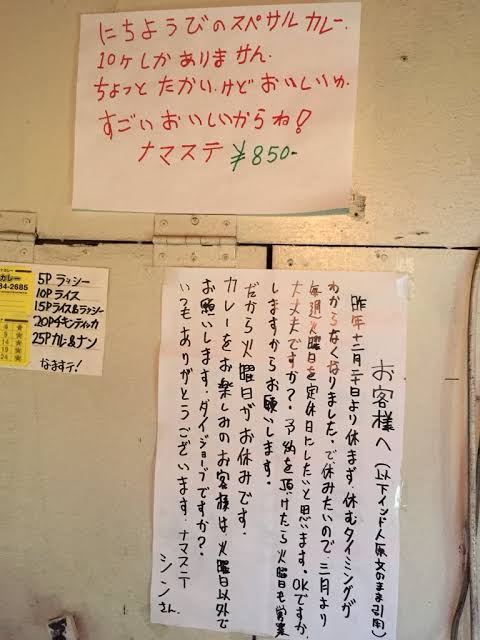 にちようびのスペサルカレー.
10ケしかありません.
ちょっとたかい.けどおいしいゆ.
すごいおいしいからね!
ナマステ ¥850-
カレー
84-2685
4
9
14
19
24
5P ラッシー
10P ライス
15P ライス&ラッシー
20P チキンティルカ
25P カレ&ナン
なますテ!
お客様へ(以下インド人原文のまま引用)
昨年十二月二十日より休まず.休むタイミングが
わからなくなりました.で休みたいので.三月より
毎週火曜日を定休日にしたいと思います。OKですか.
大丈夫ですか?.予約を頂けたら火曜日も営業
しますからお願いします。
だから火曜日がお休みです.
カレーをお楽しみのお客様は火曜日以外で
お願いします.ダイジョーブですか?.
いつもありがとうございます.ナマステー
シンさん.